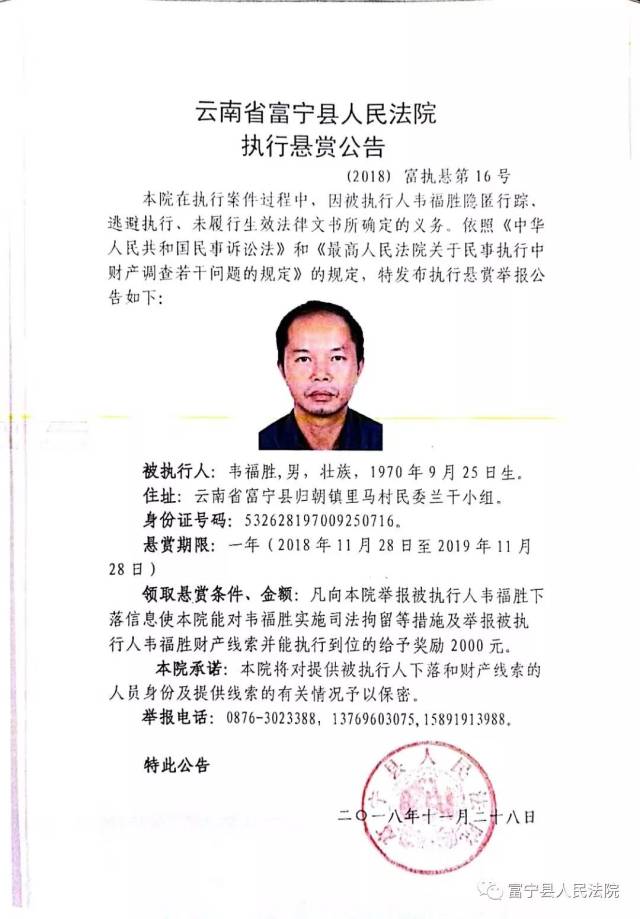 云南省富宁县人民法院
执行悬赏公告
(2018) 富执悬第 16 号
本院在执行案件过程中，因被执行人韦福胜隐匿行踪、
逃避执行、未履行生效法律文书所确定的义务。依照《中华
人民共和国民事诉讼法》和《最高人民法院关于民事执行中
财产调查若干问题的规定》的规定，特发布执行悬赏举报公
告如下：
被执行人：韦福胜,男，壮族，1970 年 9 月 25 日生。
住址：云南省富宁县归朝镇里马村民委兰干小组。
身份证号码：532628197009250716。
悬赏期限：一年（2018 年 11 月 28 日至 2019 年 11 月
28 日）
领取悬赏条件、金额：凡向本院举报被执行人韦福胜下
落信息使本院能对韦福胜实施司法拘留等措施及举报被执
行人韦福胜财产线索并能执行到位的给予奖励 2000 元。
本院承诺：本院将对提供被执行人下落和财产线索的
人员身份及提供线索的有关情况予以保密。
举报电话：0876-3023388，13769603075,15891913988。
特此公告
二〇一八年十一月二十八日
富宁县人民法院